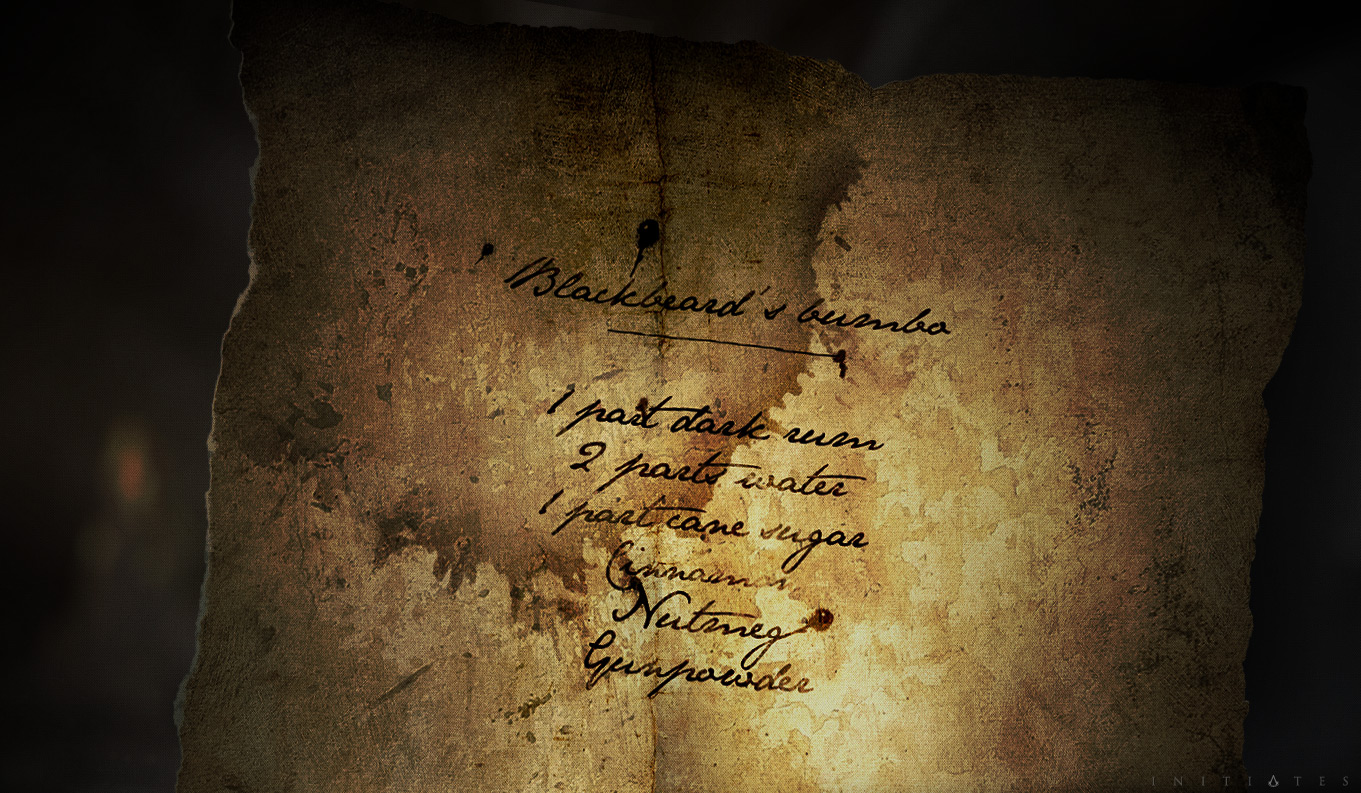 Blackbeard's bumbo
1 part dark rum
2 parts water
1 part cane sugar
Cinnamon
Nutmeg
Gunpowder
INITIATES